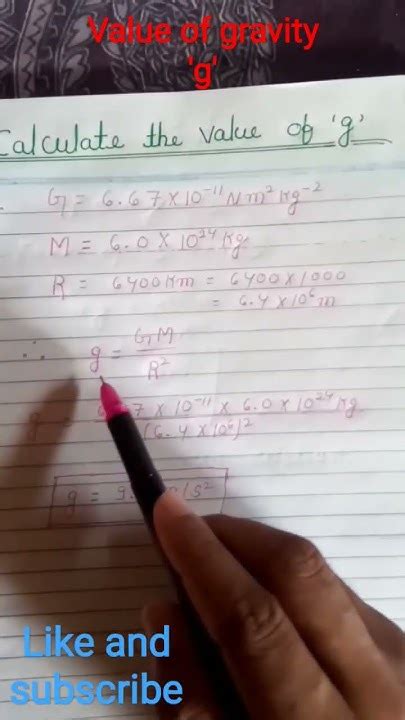 Value of gravity
'g'
Calculate the value of 'g'
G = 6.67 × 10⁻¹¹ N m² kg⁻²
M = 6.0 × 10²⁴ kg
R = 6400 Km = 6400 × 1000
= 6.4 × 10⁶ m
∴ g = GM
R²
7 × 10⁻¹¹ × 6.0 × 10²⁴ kg
(6.4 × 10⁶)²
g = 9. /s²
Like and
subscribe